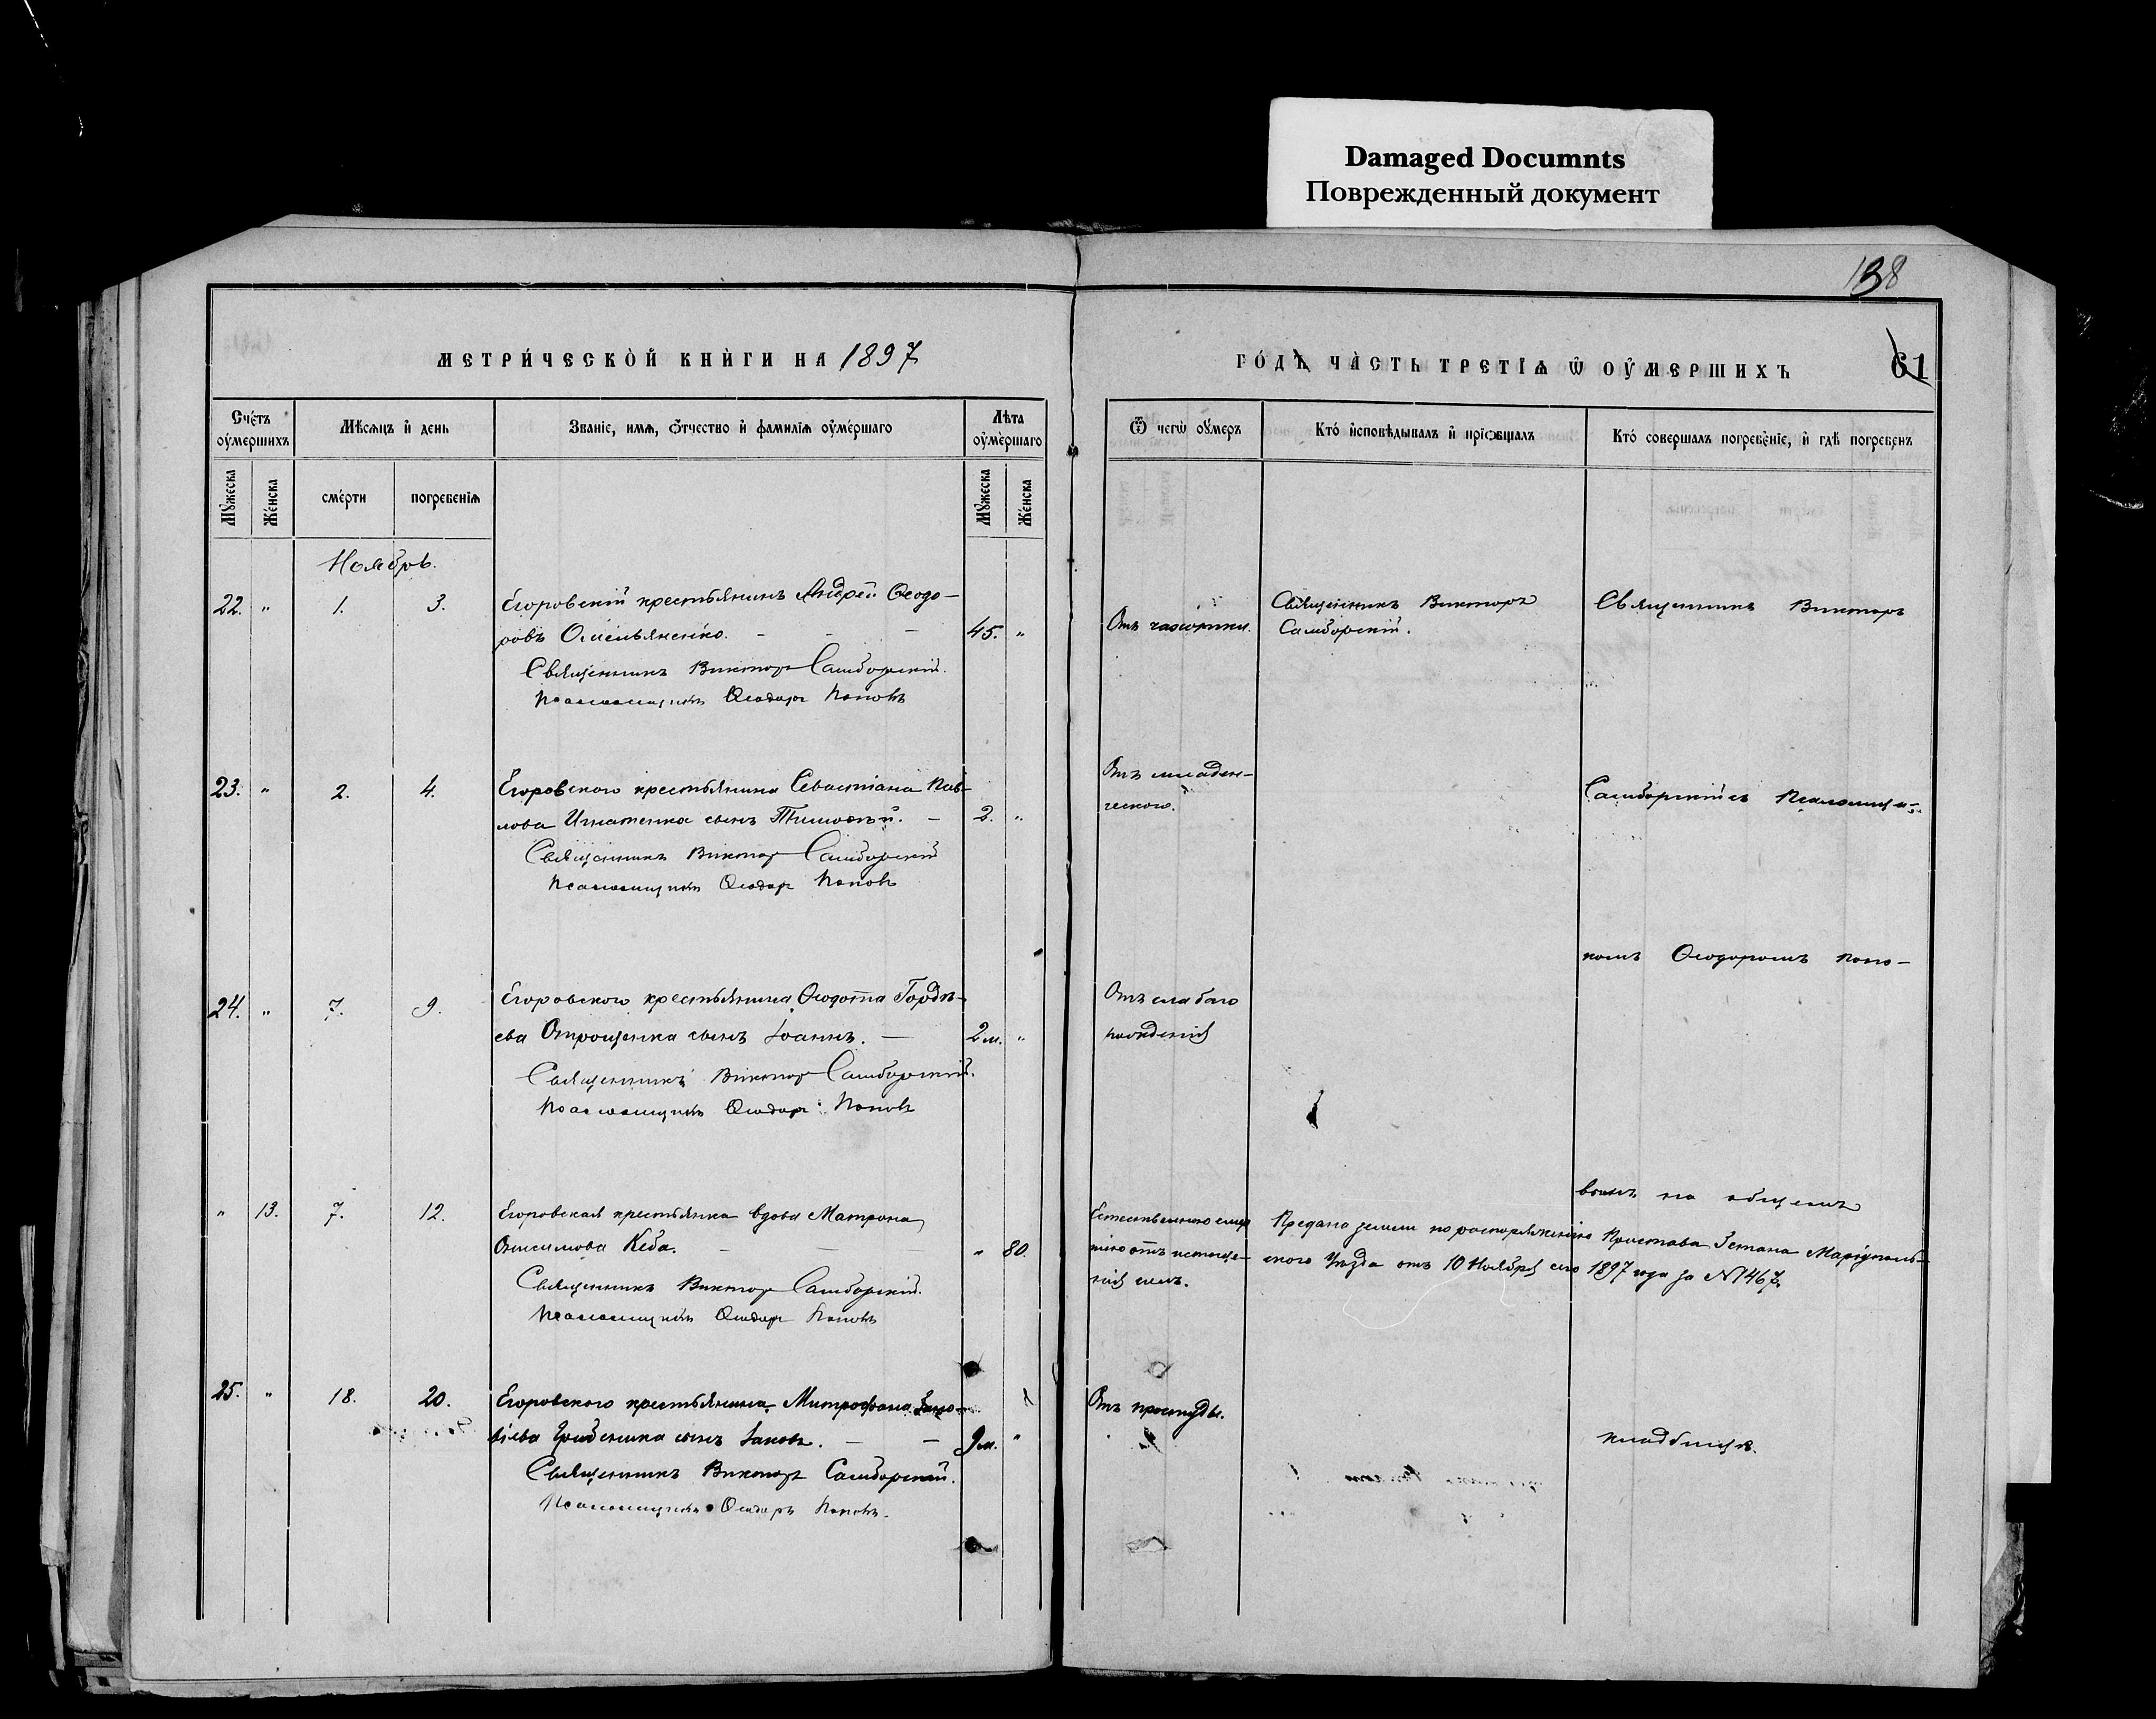 Damaged Documnts
Поврежденный документ
138
МЕТРИ́ЧЕСКОЙ КНИ́ГИ НА 1897
ГО́ДЪ ЧА́СТЬ ТРЕТІѦ Ѡ҆ ОУ҆МЕРШИХЪ
61
Сче́тъ оу҆мершихъ
Мѣсѧцъ и҆ день
Званіе, имѧ, ѻ҆тчество и҆ фамилїѧ оу҆ме́ршаго
Лѣта оу҆ме́ршаго
Ѿ чегѡ оу҆меръ
Кто́ и҆сповѣдывалъ и҆ прїѻбщалъ
Кто́ совершалъ погребе́нїе, и҆ гдѣ погребенъ
Мꙋжеска
Же́нска
сме́рти
погребенїѧ
Мꙋжеска
Же́нска
Ноябрь.
22. " 1. 3. Егоровскій крестьянинъ Андрей Ѳеодо-
ровъ Омельяненко. - - - 45. "
Священникъ Викторъ Самборскій.
Псаломщикъ Ѳеодоръ Поповъ
Отъ чахотки.
Священникъ Викторъ
Самборскій.
Священникъ Викторъ
23. " 2. 4. Егоровского крестьянина Севастіана Пав-
лова Игнатенка сынъ Тимоѳей. - 2. "
Священникъ Викторъ Самборскій
Псаломщикъ Ѳеодоръ Поповъ
Отъ младен-
ческого.
Самборскій съ Псаломщи-
комъ Ѳеодоромъ Попо-
24. " 7. 9. Егоровского крестьянина Ѳеодота Гордѣ-
ева Отрощенка сынъ Іоаннъ. — 2 м. "
Священникъ Викторъ Самборскій.
Псаломщикъ Ѳеодоръ Поповъ
Отъ слабаго
рожденія
вымъ на общемъ
" 13. 7. 12. Егоровская крестьянка вдова Матрона
Онисимова Кеба. - - " 80.
Священникъ Викторъ Самборскій.
Псаломщикъ Ѳеодоръ Поповъ
Естественною смер
тію отъ истоще-
нія силъ.
Предана земли по распоряженію Пристава 3 стана Маріуполь-
ского Уѣзда отъ 10 Ноября сего 1897 года за № 1467.
25. " 18. 20. Егоровского крестьянина Митрофана
сынъ Іаковъ. - - 9 м. "
Священникъ Викторъ Самборскій.
Псаломщикъ Ѳеодоръ Поповъ.
Отъ простуды.
кладбищѣ.